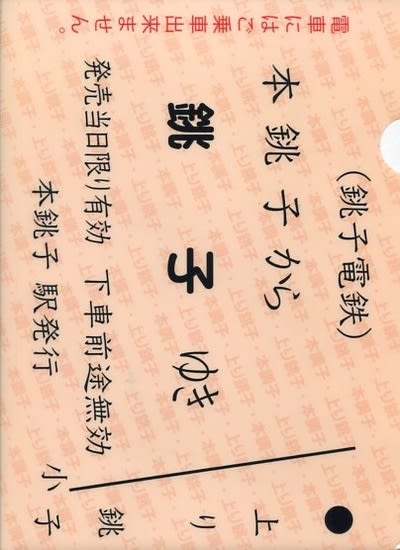 電車にはご乗車出来ません。
(銚子電鉄)
本銚子から
銚子ゆき
発売当日限り有効 下車前途無効
本銚子駅発行
●
上
り
銚
小 子